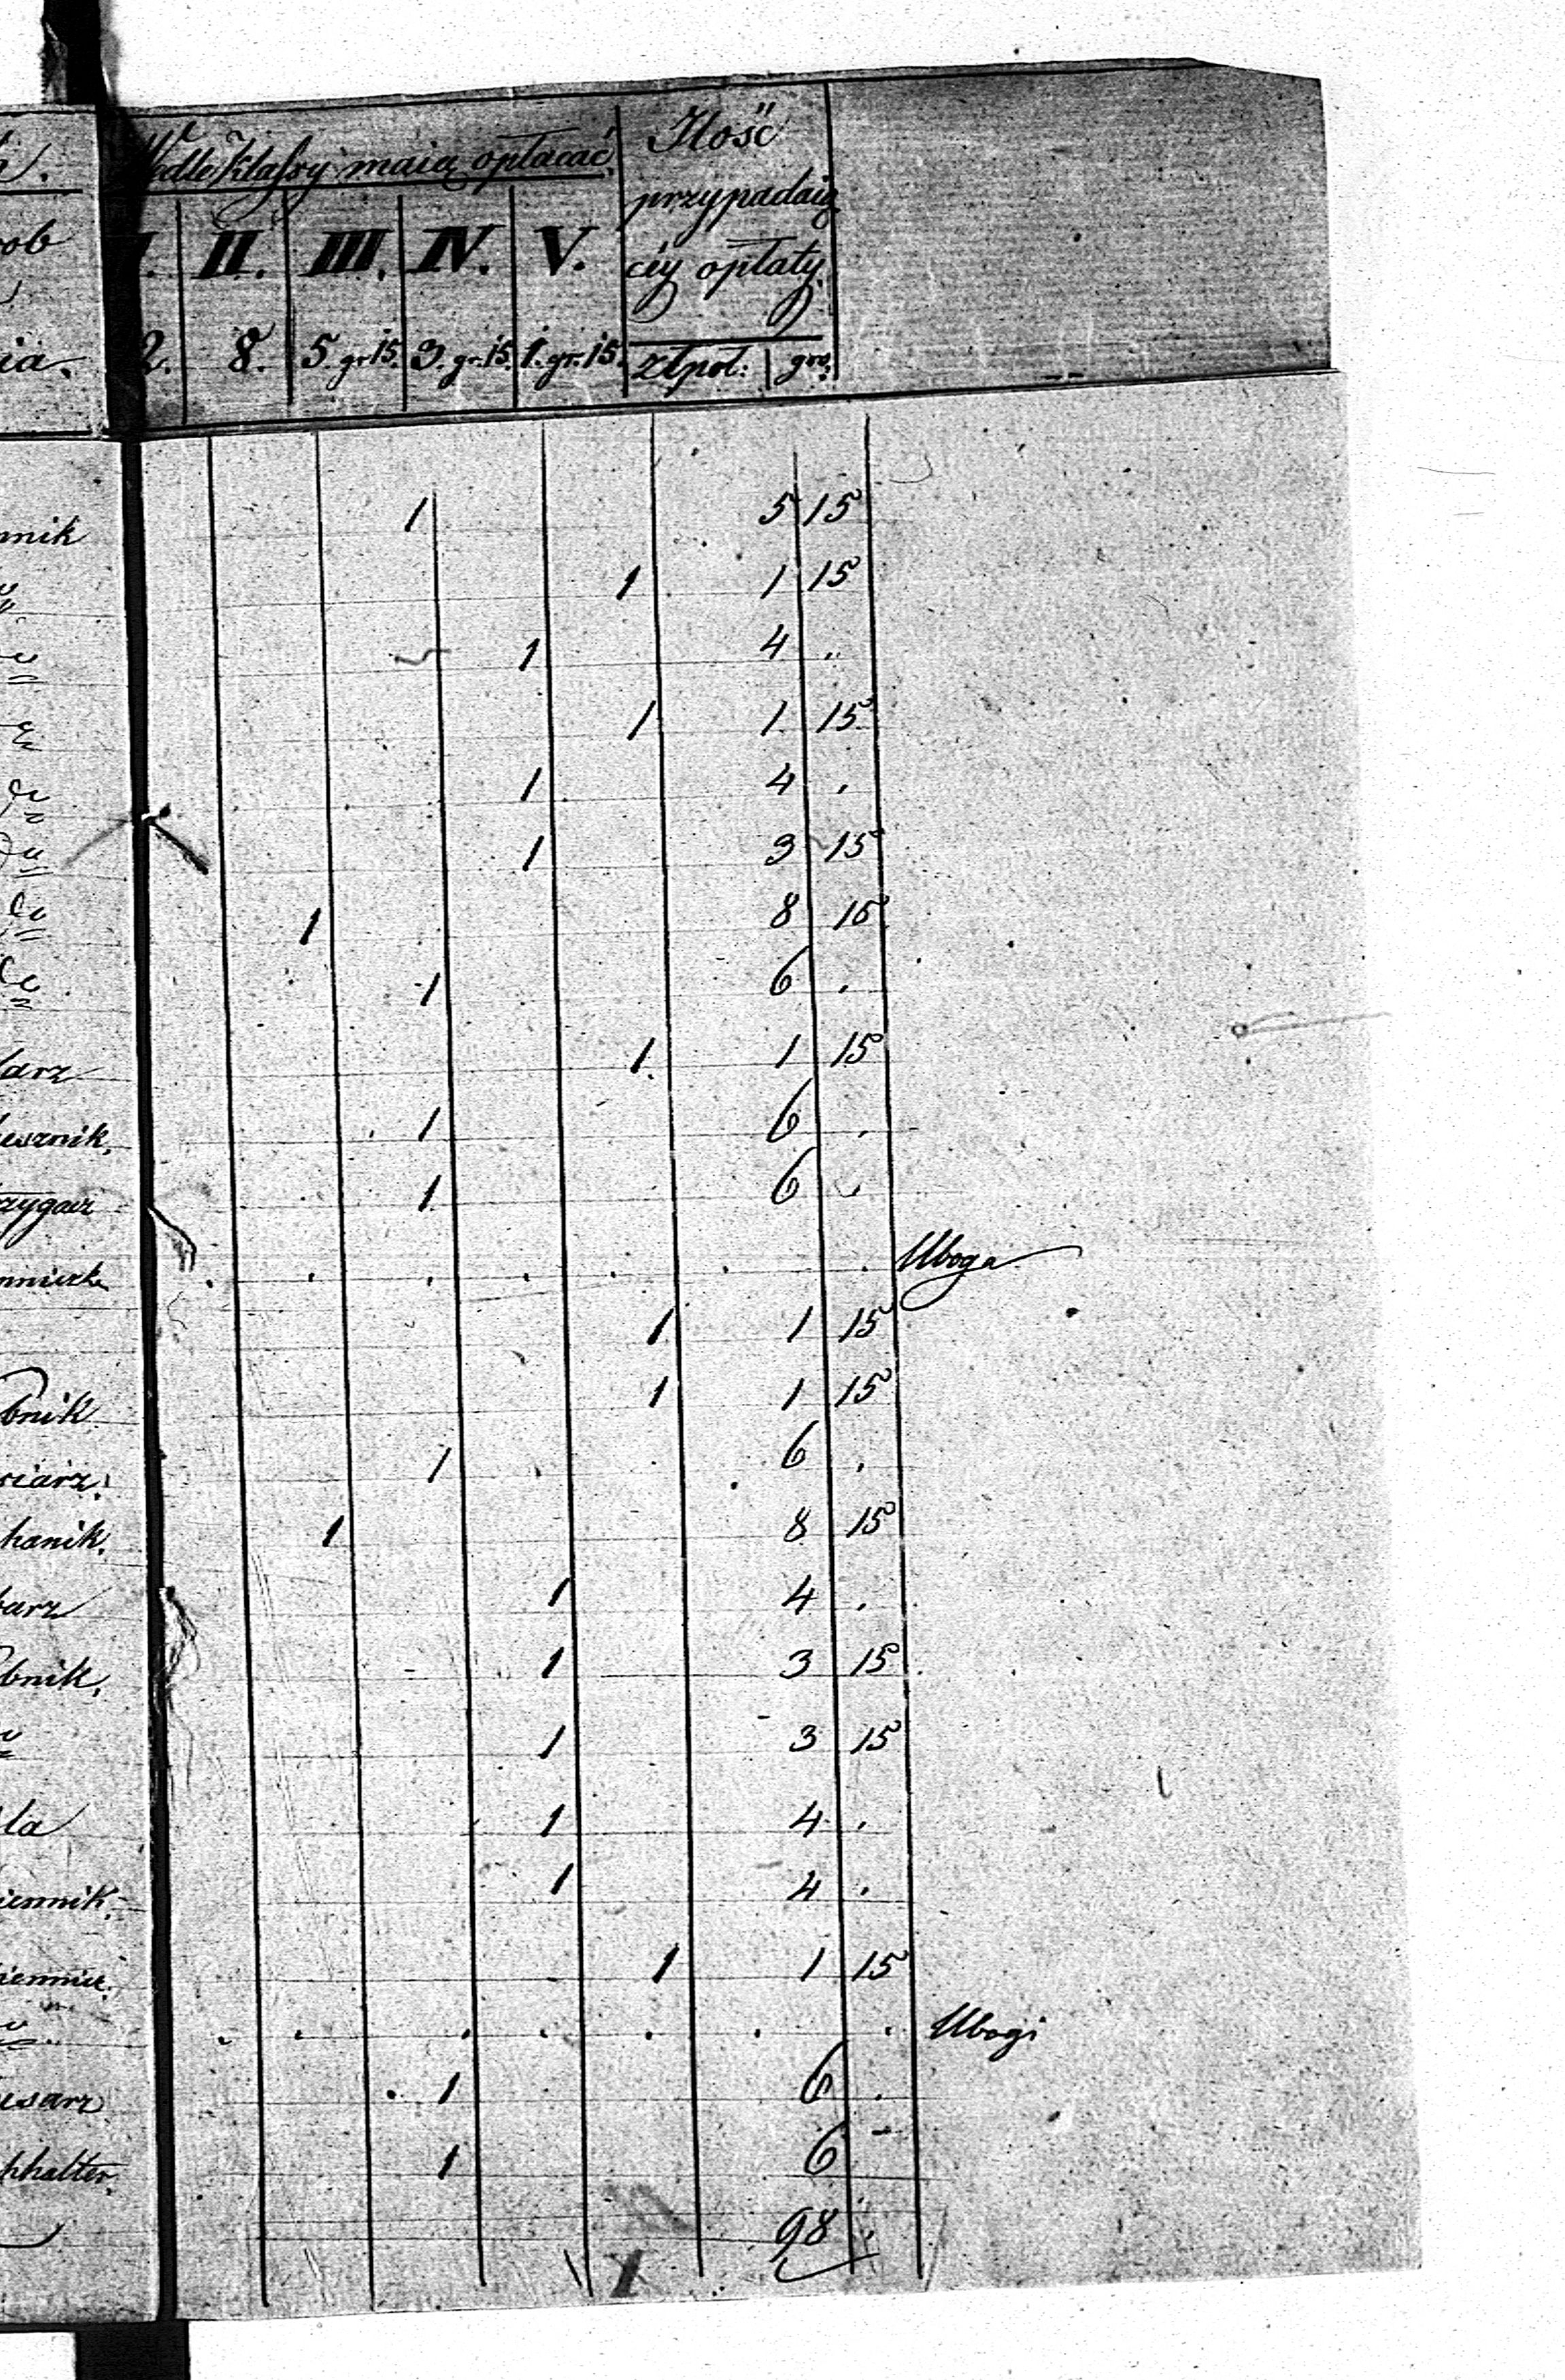 Wedle klassy maią opłacać
Ilość
przypadaią
cey opłaty
I. II. III. IV. V.
2. 8. 5. gr 15. 3. gr. 15. 1. gr. 15. złpol: gro:
nnik 1 5 15
1 1 15
1 4 "
1 1 15
1 4 .
1 3 15
1 8 15
1 6 .
arz 1 1 15
1 6 .
1 6 .
. . . . . . . Uboga
1 1 15
bnik 1 1 15
siarz. 1 6 .
hanik. 1 8 15
barz 1 4 .
bnik, 1 3 15
1 3 15
la 1 4 .
iennik. 1 4 .
1 1 15
. . . . . . . Ubogi
usarz 1 6 .
hhalter. 1 6
98 .